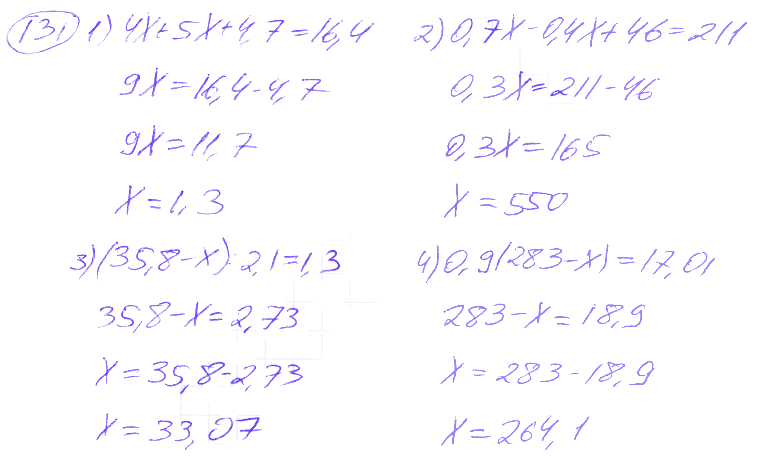 131 1) 4x+5x+4,7=16,4
9x=16,4-4,7
9x=11,7
x=1,3
2) 0,7x-0,4x+46=211
0,3x=211-46
0,3x=165
x=550
3) (35,8-x):2,1=1,3
35,8-x=2,73
x=35,8-2,73
x=33,07
4) 0,9(283-x)=17,01
283-x=18,9
x=283-18,9
x=264,1